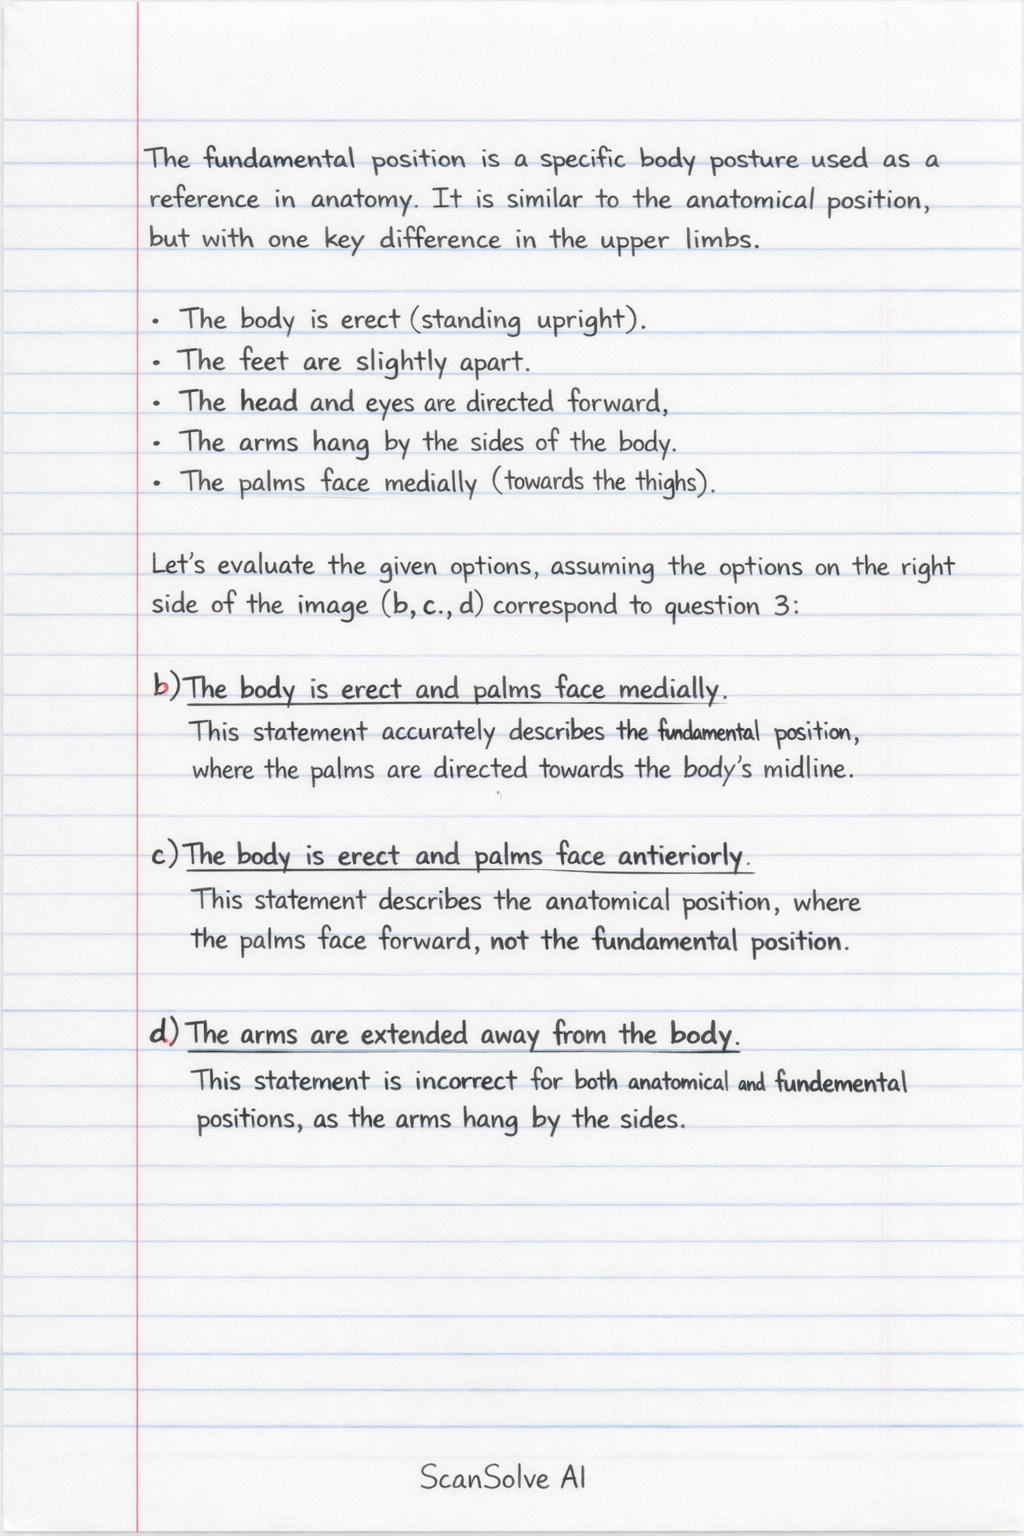 The fundamental position is a specific body posture used as a
reference in anatomy. It is similar to the anatomical position,
but with one key difference in the upper limbs.
• The body is erect (standing upright).
• The feet are slightly apart.
• The head and eyes are directed forward,
• The arms hang by the sides of the body.
• The palms face medially (towards the thighs).
Let's evaluate the given options, assuming the options on the right
side of the image (b, c., d) correspond to question 3:
b) The body is erect and palms face medially.
This statement accurately describes the fundamental position,
where the palms are directed towards the body's midline.
c) The body is erect and palms face antieriorly.
This statement describes the anatomical position, where
the palms face forward, not the fundamental position.
d) The arms are extended away from the body.
This statement is incorrect for both anatomical and fundemental
positions, as the arms hang by the sides.
ScanSolve AI